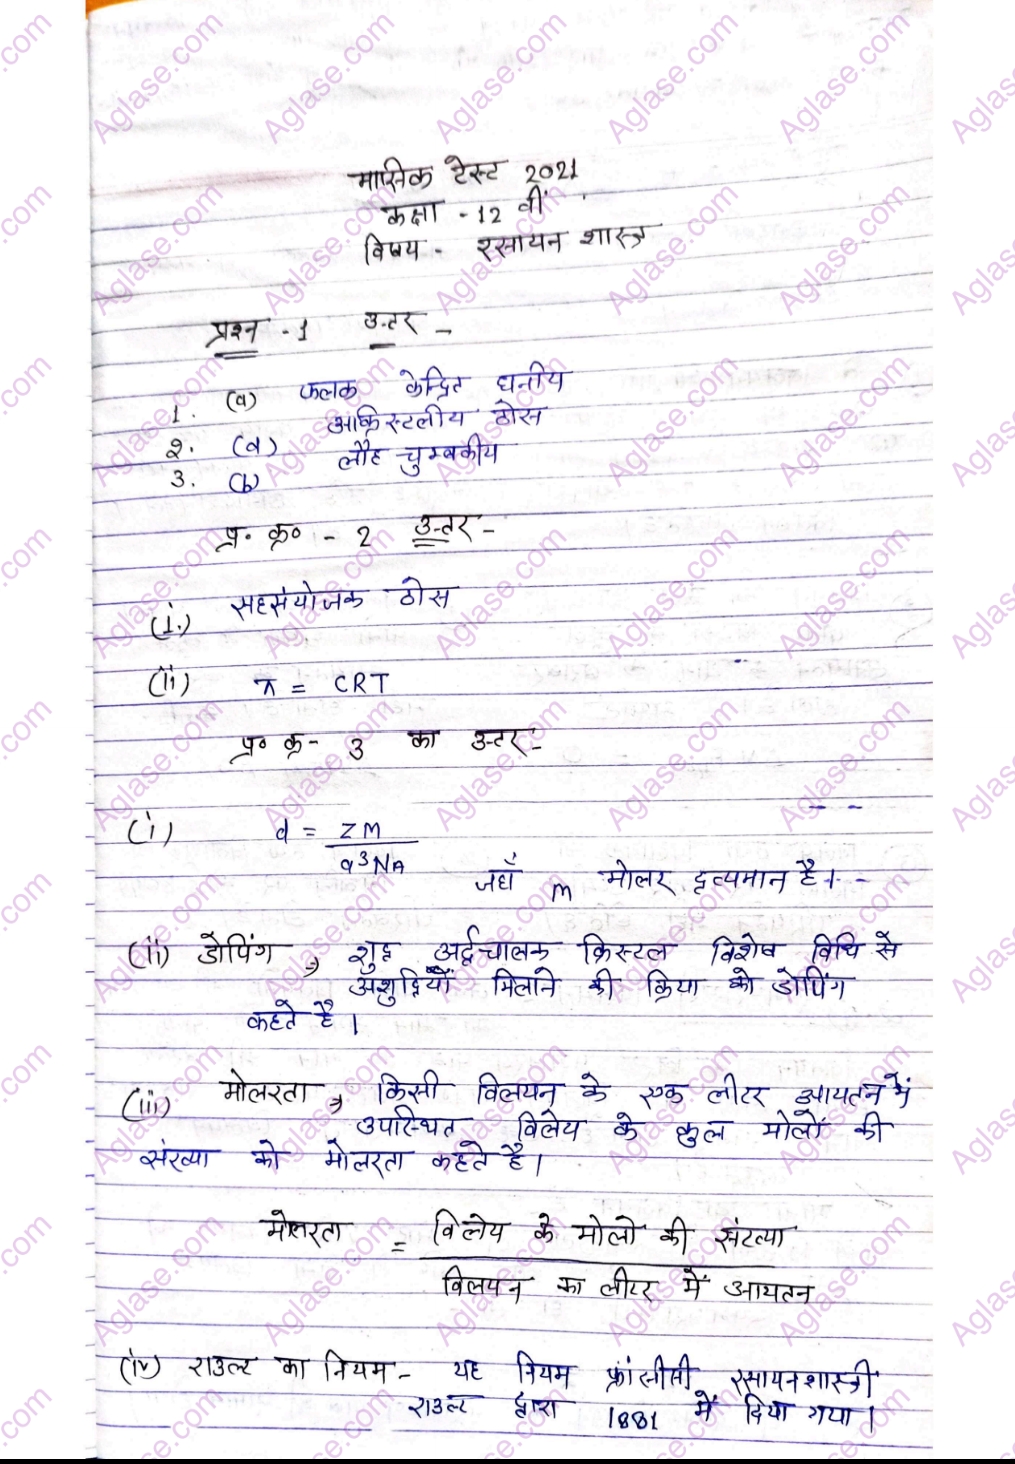 मासिक टेस्ट 2021
कक्षा - 12 वीं
विषय - रसायन शास्त्र
प्रश्न - 1 उत्तर -
1. (a) फलक केन्द्रित घनीय
2. (d) अक्रिस्टलीय ठोस
3. (b) लौह चुम्बकीय
प्र. क्र० - 2 उत्तर -
(i.) सहसंयोजक ठोस
(ii) π = CRT
प्र० क्र - 3 का उत्तर -
(i) d = ZM
a³NA
जहाँ m मोलर द्रव्यमान है। -
(ii) डोपिंग → शुद्ध अर्द्धचालक क्रिस्टल विशेष विधि से
अशुद्धियाँ मिलाने की क्रिया को डोपिंग
कहते है।
(iii) मोलरता → किसी विलयन के एक लीटर आयतन में
उपस्थित विलेय के कुल मोलों की
संख्या को मोलरता कहते है।
मोलरता = विलेय के मोलो की संख्या
विलयन का लीटर में आयतन
(iv) राउल्ट का नियम - यह नियम फ्रांसीसी रसायनशास्त्री
राउल्ट द्वारा 1881 में दिया गया।
Aglase.com